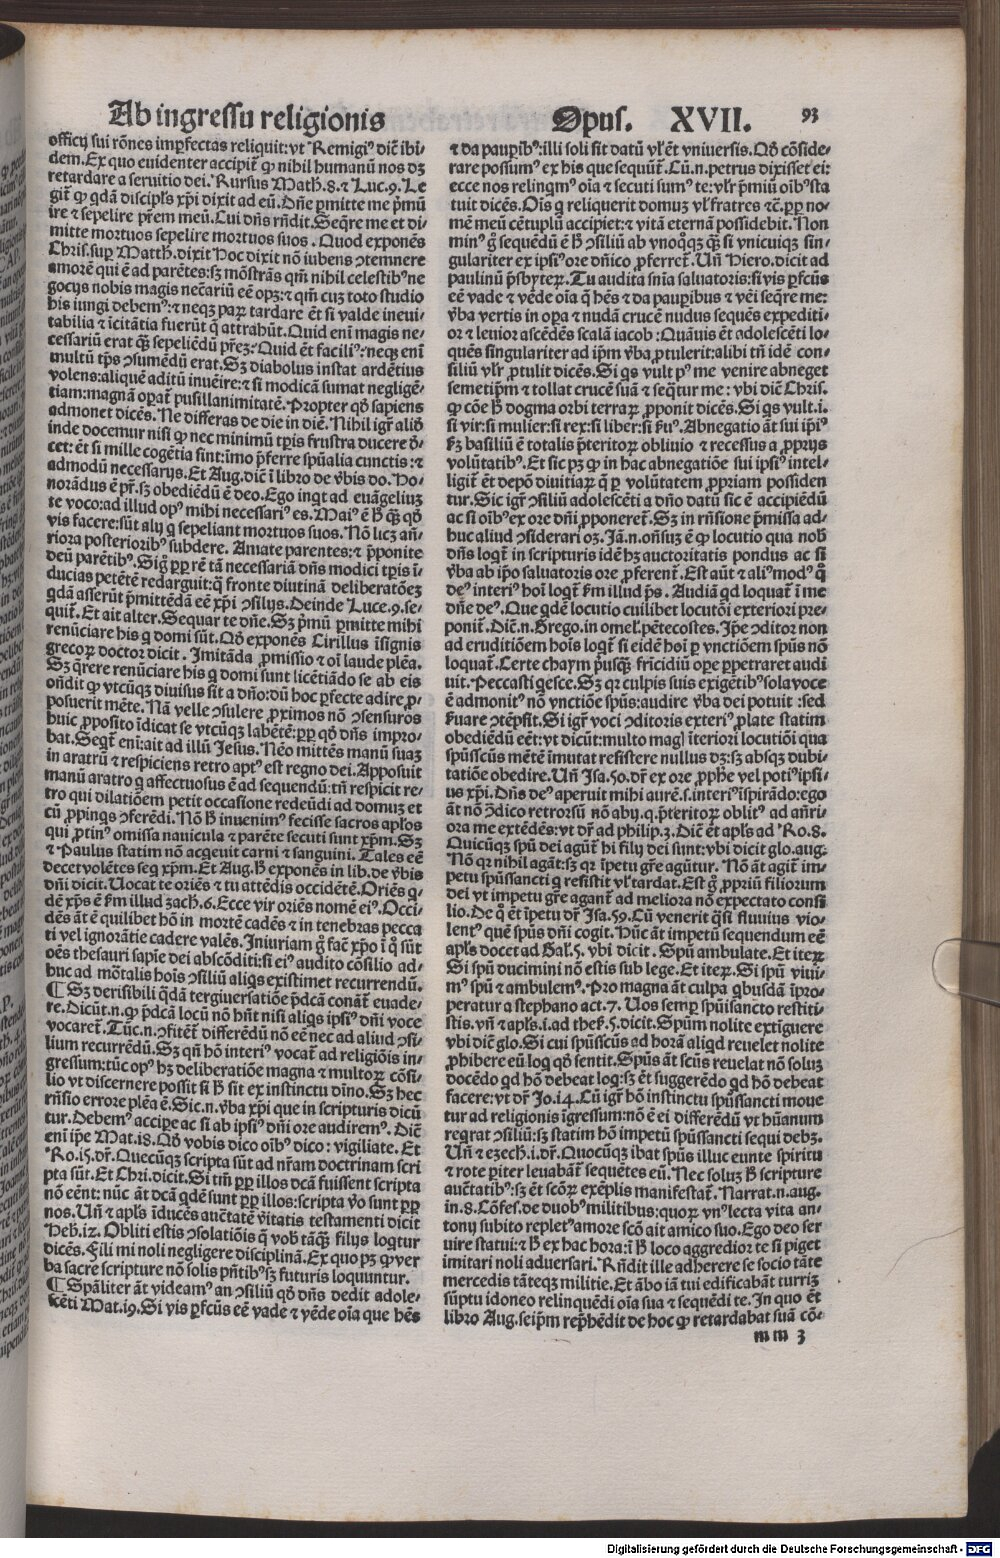 Ab ingressu religionis
Opus. XVII. 93
officij sui rōnes imperfectas reliquit: vt Remigiꝰ dicit ibi⸗
dem. Ex quo euidenter accipit̄ ꝙ nihil humanū nos dꝫ
retardare a seruitio dei. Rursus Math. 8. ⁊ Luc. 9. Le
git̄ ꝙ qdā discipls xp̄i dixit ad eū. Dn̄e ꝑmitte me pͥmū
ire ⁊ sepelire pr̄em meū. Cui dn̄s rn̄dit. Seqr̄e me et di⸗
mitte mortuos sepelire mortuos suos. Quod exponēs
Chris. suꝑ Matth. dixit Hoc dixit nō iubens ꝯtemnere
amorē qui ē ad parētes: sꝫ mōstrās qm̄ nihil celestibꝰ ne
gocijs nobis magis nec̄ariū eē opꝫ: ⁊ qm̄ cuꝫ toto studio
his iungi debemꝰ: ⁊ neqꝫ parꝝ tardare ēt si valde ineui⸗
tabilia ⁊ īcitātia fuerūt q̄ attrahūt. Quid eni magis ne⸗
cessariū erat qꝫ sepeliēdū pr̄eꝫ: Quid ēt faciliꝰ: neqꝫ enī
multū tp̄s ꝯsumēdū erat. Sꝫ diabolus instat ardētius
volens: aliquē aditū inuēire: ⁊ si modicā sumat negligē⸗
tiam: magnā oꝑat̄ pusillanimitatē. Propter qd̄ sapiens
admonet dicēs. Ne differas de die in diē. Nihil igr̄ aliud
inde docemur nisi ꝙ nec minimū tꝑis frustra ducere d̄⸗
cet: ēt si mille cogētia sint: imo p̄ferre spūalia cunctis: ⁊
admodū necessarijs. Et Aug. dic̄ ī libro de v̄bis do. Ho⸗
norādus ē pr̄. sꝫ obediēdū ē deo. Ego inqt ad euāgeliuꝫ
te voco: ad illud opꝰ mihi necessariꝰ es. Maiꝰ ē ħ qꝫ qd̄
vis facere: sūt alij q sepeliant mortuos suos. Nō licꝫ an̄⸗
riora posterioribꝰ subdere. Amate parentes: ⁊ p̄ponite
deū parētibꝰ. Sig̊ ꝓꝑ rē tā necessariā dn̄s modici tꝑis ī⸗
ducias petētē redarguit: q̄ fronte diutinā deliberatōeꝫ
qdā asserūt p̄mittēdā eē xp̄i ꝯsilijs. Deinde Luce. 9. se⸗
quit̄. Et ait alter. Sequar te dn̄e. Sꝫ pͥmū ꝑmitte mihi
renūciare his q domi sūt. Qd̄ exponēs Cirillus īsignis
grecoꝝ doctor dicit. Imitāda ꝓmissio ⁊ oī laude plēa.
Sꝫ q̄rere renūciare his q domi sunt licētiādo se ab eis
on̄dit ꝙ vtcūqꝫ diuisus sit a dn̄o: dū hoc ꝑfecte adire ꝓ⸗
posuerit mēte. Nā velle ꝯsulere ꝓximos nō ꝯsensuros
huic ꝓposito īdicat se vtcūqꝫ labētē: ꝓꝑ qd̄ dn̄s impro⸗
bat. Seqt̄ eni: ait ad illū Jesus. Nēo mittēs manū suaꝫ
in aratrū ⁊ respiciens retro aptꝰ est regno dei. Apposuit
manū aratro q affectuosus ē ad sequendū: tn̄ respicit re⸗
tro qui dilatiōem petit occasione redeūdi ad domuꝫ et
cū ꝓpinqs ꝯferēdi. Nō ħ inuenimꝰ fecisse sacros apl̄os
qui ꝓtinꝰ omissa nauicula ⁊ parēte secuti sunt xpm̄. Sꝫ
⁊ Paulus statim nō acqeuit carni ⁊ sanguini. Tales eē
decet volētes seq xpm̄. Et Aug. ħ exponēs in lib. de v̄bis
dn̄i dicit. Uocat te oriēs ⁊ tu attēdis occidētē. Oriēs q⸗
dē xp̄s ē fm̄ illud ꝫach. 6. Ecce vir oriēs nomē eiꝰ. Occi⸗
dēs āt ē quilibet hō in mortē cadēs ⁊ in tenebras pecca
ti vel ignorātie cadere valēs. Iniuriam g̊ fac̄ xp̄o ī q̊ sūt
oēs thesauri sapīe dei abscōditi: si eiꝰ audito cōsilio ad⸗
huc ad mōtalis hoīs ꝯsiliū aliqs existimet recurrendū.
¶ Sꝫ derisibili qdā tergiuersatiōe p̄dcā conāt̄ euade⸗
re. Dicūt. n. ꝙ p̄dcā locū nō hn̄t nisi aliqs ipsiꝰ dn̄i voce
vocaret̄. Tūc. n. ꝯfitēt̄ differēdū nō eē nec ad aliud ꝯsi⸗
lium recurrēdū. Sꝫ qn̄ hō interiꝰ vocat̄ ad religiōis in⸗
gressum: tūc opꝰ hꝫ deliberatiōe magna ⁊ multoꝝ cōsi⸗
lio vt discernere possit si ħ sit ex instinctu dīno. Sꝫ hec
rn̄sio errore plēa ē. Sic. n. v̄ba xp̄i que in scripturis dicū
tur. Debemꝰ accipe ac si ab ipsiꝰ dn̄i ore audiremꝰ. Dic̄
eni ip̄e Mat. 18. Qd̄ vobis dico oībꝰ dico: vigiliate. Et
Ro. 15. dr̄. Quecūqꝫ scripta sūt ad nr̄am doctrinam scri
pta sūt. Et Chri. dicit. Si tm̄ ꝓꝑ illos dcā fuissent scripta
nō eēnt: nūc āt dcā qdē sunt ꝓꝑ illos: scripta v̄o sunt ꝓꝑ
nos. Un̄ ⁊ apl̄s īducēs auc̄tatē v̄itatis testamenti dicit
Heb. 12. Obliti estis ꝯsolatiōis q̄ vob̄ tāqꝫ filijs loqtur
dicēs. Fili mi noli negligere disciplinā. Ex quo pꝫ ꝙ ver
ba sacre scripture nō solis pn̄tibꝰ sꝫ futuris loquuntur.
¶ Spāliter āt videamꝰ an ꝯsiliū qd̄ dn̄s dedit adole⸗
scēti Mat. 19. Si vis ꝑfcūs eē vade ⁊ vēde oīa que hēs
⁊ da paupibꝰ: illi soli sit datū vl̄ ēt vniuersis. Qd̄ cōside⸗
rare possumꝰ ex his que sequūt̄. Cū. n. petrus dixisset ei:
ecce nos relinqmꝰ oīa ⁊ secuti sumꝰ te: vl̄r p̄miū oībꝰ sta
tuit dicēs. Ois q reliquerit domuꝫ vl̄ fratres ⁊c̄. ꝓꝑ no⸗
mē meū cētuplū accipiet: ⁊ vitā eternā possidebit. Non
minꝰ g̊ sequēdū ē ħ ꝯsiliū ab vnoqͦqꝫ qꝫ si vnicuiqꝫ sin⸗
gulariter ex ipsiꝰ ore dn̄ico ꝓferret̄. Un̄ Hiero. dicit ad
paulinū pr̄sbyteꝝ. Tu audita sn̄ia saluatoris: si vis ꝑfcūs
eē vade ⁊ vēde oīa q̄ hēs ⁊ da pauꝑibus ⁊ vēi seqr̄e me:
v̄ba vertis in oꝑa ⁊ nudā crucē nudus sequēs expediti⸗
or ⁊ leuior ascēdēs scalā iacob: Quāuis ēt adolescēti lo⸗
quēs singulariter ad ip̄m v̄ba ꝓtulerit: alibi tn̄ idē con⸗
siliū vl̄r ꝓtulit dicēs. Si qs vult pꝰ me venire abneget
semetip̄m ⁊ tollat crucē suā ⁊ seqtur me: vbi dic̄ Chris.
ꝙ cōe ħ dogma orbi terraꝝ ꝓponit dicēs. Si qs vult. i.
si vir: si mulier: si rex: si liber: si ẜuꝰ. Abnegatio āt sui ip̄iꝰ
ẜꝫ basiliū ē totalis p̄teritoꝝ obliuio ⁊ recessus a ꝓprijs
volūtatibꝰ. Et sic pꝫ ꝙ in hac abnegatiōe sui ipsiꝰ intel⸗
ligit̄ ēt depō diuitiaꝝ q̄ ꝑ volūtatem ꝓpriam possiden
tur. Sic igr̄ ꝯsiliū adolescēti a dn̄o datū sic ē accipiēdū
ac si oībꝰ ex ore dn̄i ꝓponeret̄. Sꝫ in rn̄sione p̄missa ad⸗
huc aliud ꝯsiderari oꝫ. Jā. n. on̄suꝫ ē ꝙ locutio qua nob̄
dn̄s loqt̄ in scripturis idē hꝫ auctoritatis pondus ac si
v̄ba ab ip̄o saluatoris ore ꝓferent̄. Est aūt ⁊ aliꝰ modꝰ q̊
deꝰ interiꝰ hoī loqt̄ fm̄ illud p̄s. Audiā qd loquat̄ ī me
dn̄e deꝰ. Que qdē locutio cuilibet locutōi exteriori pre⸗
ponit̄. Dic̄. n. Grego. in omel. pētecostes. Ip̄e ꝯditor non
ad eruditiōem hoīs loqt̄ si eidē hoī ꝑ vnctiōem spūs nō
loquat̄. Certe chaym pͥusqꝫ fr̄icidiū oꝑe ꝑpetraret audi
uit. Peccasti qesce. Sꝫ qꝛ culpis suis exigētibꝰ sola voce
ē admonitꝰ nō vnctiōe spūs: audire v̄ba dei potuit: sed
ẜuare ꝯtēpsit. Si igr̄ voci ꝯditoris exteriꝰ plate statim
obediēdū eēt: vt dicūt: multo magꝭ īteriori locutiōi qua
spūsscūs mētē īmutat resistere nullus dꝫ: sꝫ absqꝫ dubi⸗
tatiōe obedire. Un̄ Isa. 50. dr̄ ex ore ꝓph̄e vel potiꝰ ipsi⸗
us xp̄i. Dn̄s deꝰ aperuit mihi aurē. s. interiꝰ īspirādo: ego
āt nō ꝯ̄dico retrorsū nō abij. q. p̄teritoꝝ oblitꝰ ad an̄ri⸗
ora me extēdēs: vt dr̄ ad philip. 3. Dic̄ ēt apl̄s ad Ro. 8.
Quicūqꝫ spū dei agūt̄ hi filij dei sunt: vbi dicit glo. aug.
Nō qꝛ nihil agāt: sꝫ qꝛ īpetu gr̄e agūtur. Nō āt agit̄ im⸗
petu spūssancti q resistit vl̄ tardat. Est g̊ ꝓpriū filiorum
dei vt impetu gr̄e agant̄ ad meliora nō expectato consi
lio. De q̊ ēt īpetu dr̄ Isa. 59. Cū venerit qͣsi fluuius vio⸗
lentꝰ quē spūs dn̄i cogit. Hūc āt impetū sequendum eē
apl̄s docet ad Gal. 5. vbi dicit. Spū ambulate. Et iteꝝ
Si spū ducimini nō estis sub lege. Et iteꝝ. Si spū viui⸗
mꝰ spū ⁊ ambulemꝰ. Pro magna āt culpa qbusdā īpro⸗
peratur a stephano act. 7. Uos semꝑ spūisancto restiti⸗
stis. vn̄ ⁊ apl̄s. i. ad thes. 5. dicit. Spūm nolite extīguere
vbi dic̄ glo. Si cui spūsscūs ad horā aliqd reuelet nolite
ꝓhibere eū loq qd̄ sentit. Spūs āt scūs reuelat nō soluꝫ
docēdo qd hō debeat loq: sꝫ ēt suggerēdo qd hō debeat
facere: vt dr̄ Jo. 14. Cū igr̄ hō instinctu spūssancti moue
tur ad religionis īgressum: nō ē ei differēdū vt hūanum
reqrat ꝯsiliū: sꝫ statim hō impetū spūssancti sequi debꝫ.
Un̄ ⁊ ezech. i. dr̄. Quocūqꝫ ibat spūs illuc eunte spiritu
⁊ rote pͥter leuabāt̄ sequētes eū. Nec soluꝫ ħ scripture
auc̄tatibꝰ: sꝫ ēt scōꝝ exēplis manifestat̄. Narrat. n. aug.
in. 8. Cōfes. de duobꝰ militibus: quoꝝ vnꝰ lecta vita an⸗
tonij subito repletꝰ amore scō ait amico suo. Ego deo ser
uire statui: ⁊ ħ ex hac hora: ī ħ loco aggredior te si piget
imitari noli aduersari. Rn̄dit ille adherere se socio tāte
mercedis tāteqꝫ militie. Et ābo iā tui edificabāt turriꝫ
sūptu idoneo relinquēdi oīa sua ⁊ sequēdi te. In quo ēt
libro Aug. seip̄m rep̄hēdit de hoc ꝙ retardabat suā cō⸗
mm 3
Digitalisierung gefördert durch die Deutsche Forschungsgemeinschaft - DFG